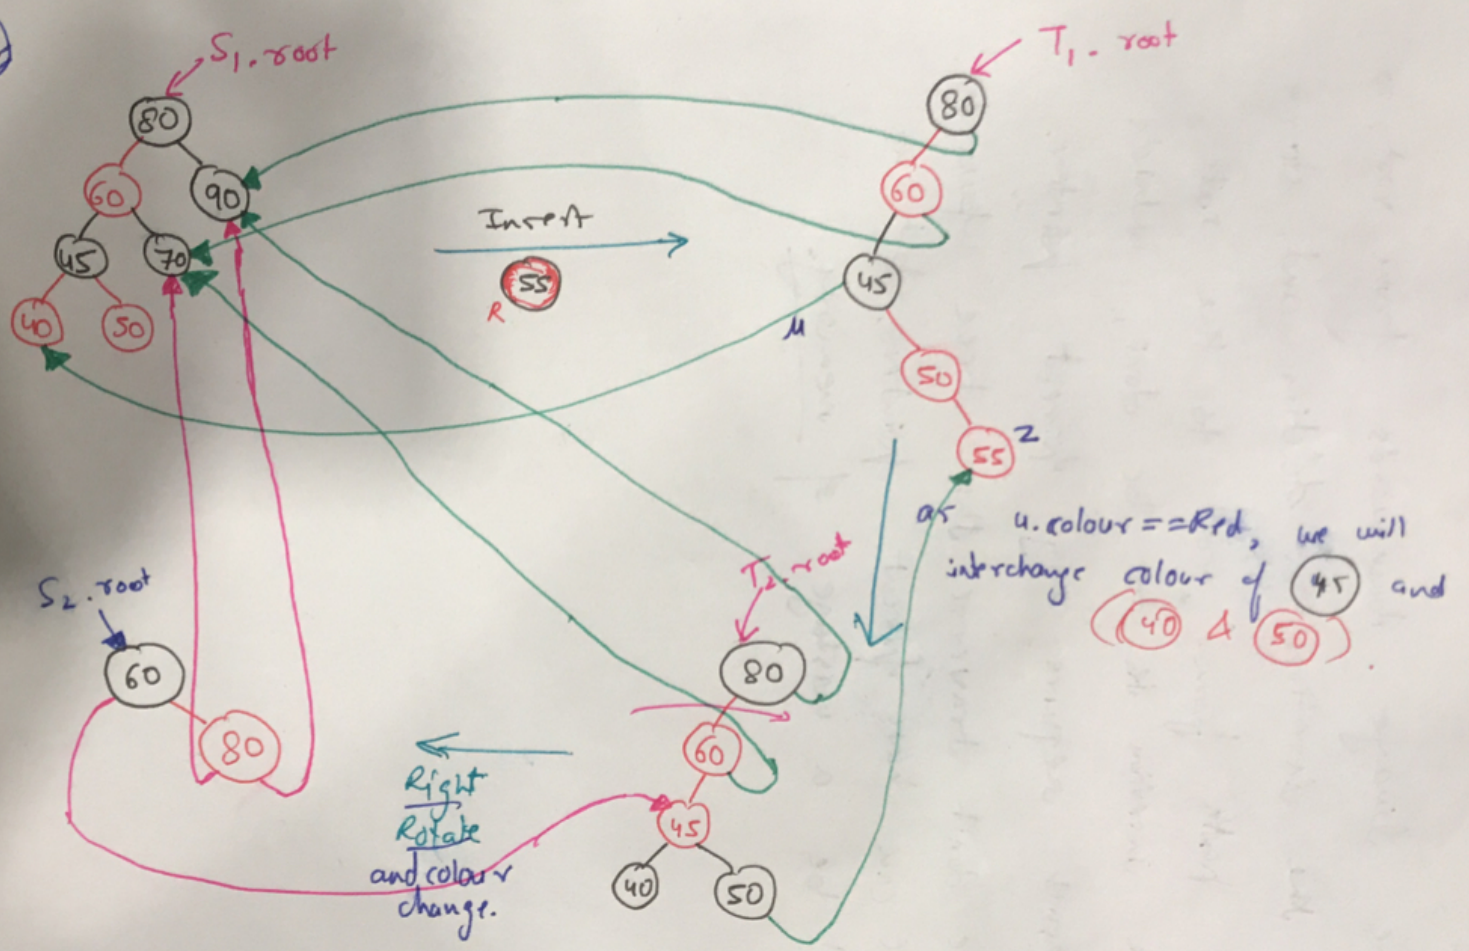 S1.root
80
60
90
45
70
40
50
Insert
55
R
T1.root
80
60
45
u
50
55
z
as u.colour==Red, we will
interchange colour of 45 and
(40 & 50).
T2.root
80
60
45
40
50
Right
Rotate
and colour
change.
S2.root
60
80